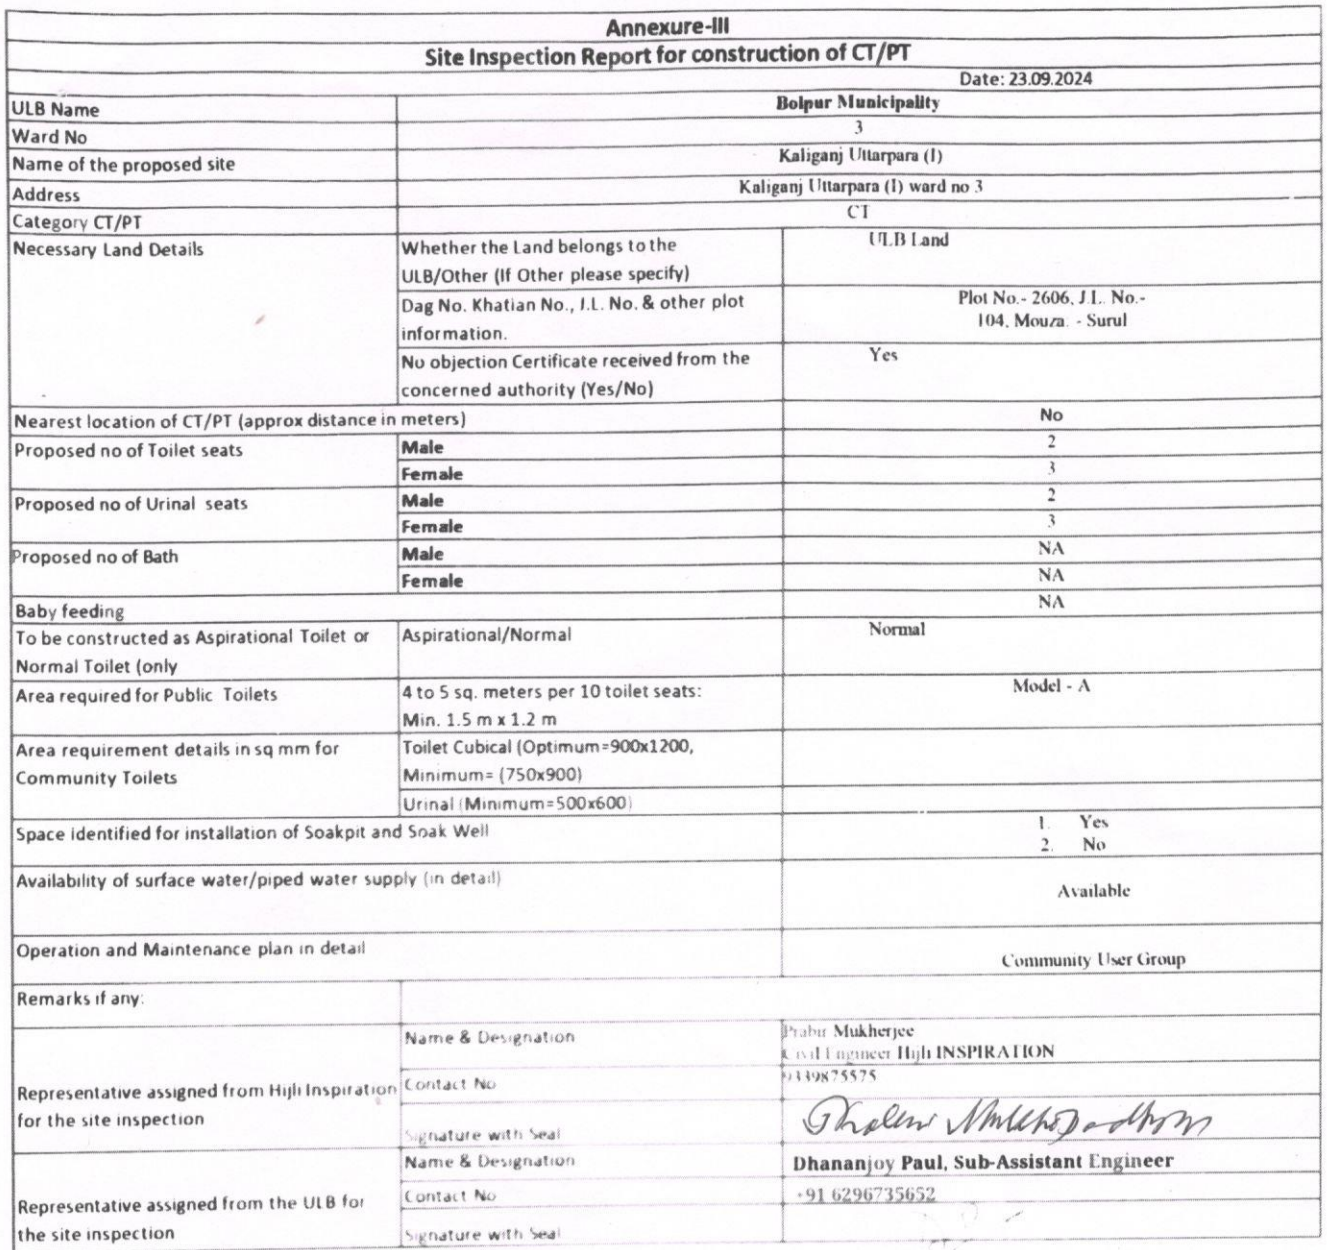 Annexure-III
Site Inspection Report for construction of CT/PT
Date: 23.09.2024
ULB Name
Bolpur Municipality
Ward No
3
Name of the proposed site
Kaliganj Uttarpara (I)
Address
Kaliganj Uttarpara (I) ward no 3
Category CT/PT
CT
Necessary Land Details
Whether the Land belongs to the
ULB/Other (If Other please specify)
ULB Land
Dag No. Khatian No., J.L. No. & other plot
information.
Plot No.- 2606, J.L. No.-
104, Mouza. - Surul
No objection Certificate received from the
concerned authority (Yes/No)
Yes
Nearest location of CT/PT (approx distance in meters)
No
Proposed no of Toilet seats
Male
2
Female
3
Proposed no of Urinal seats
Male
2
Female
3
Proposed no of Bath
Male
NA
Female
NA
Baby feeding
NA
To be constructed as Aspirational Toilet or
Normal Toilet (only
Aspirational/Normal
Normal
Area required for Public Toilets
4 to 5 sq. meters per 10 toilet seats:
Min. 1.5 m x 1.2 m
Model - A
Area requirement details in sq mm for
Community Toilets
Toilet Cubical (Optimum=900x1200,
Minimum= (750x900)
Urinal (Minimum=500x600)
Space identified for installation of Soakpit and Soak Well
1. Yes
2. No
Availability of surface water/piped water supply (in detail)
Available
Operation and Maintenance plan in detail
Community User Group
Remarks if any:
Representative assigned from Hijli Inspiration
for the site inspection
Name & Designation
Prabir Mukherjee
Civil Engineer Hijli INSPIRATION
Contact No
9339875575
Signature with Seal
Representative assigned from the ULB for
the site inspection
Name & Designation
Dhananjoy Paul, Sub-Assistant Engineer
Contact No
+91 6296735652
Signature with Seal